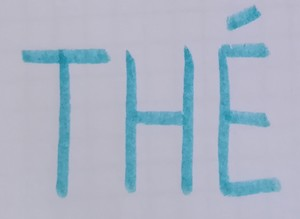 THÉ